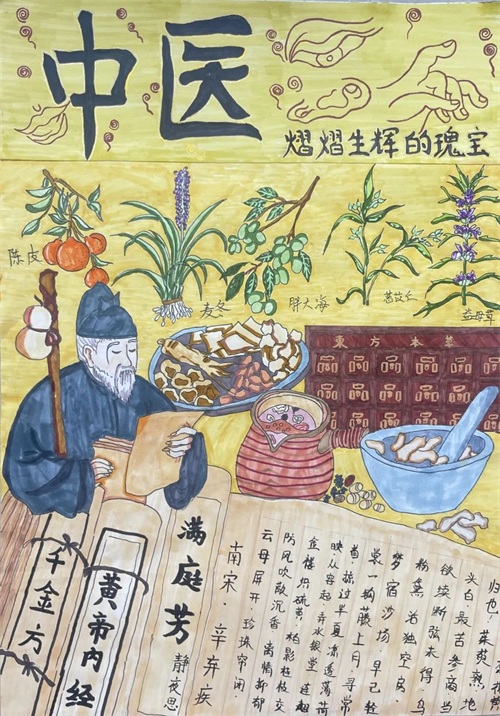 中医
熠熠生辉的瑰宝
陈皮
麦冬
胖大海
益母草
東方本草
千金方
黄帝内经
满庭芳
静夜思
南宋 辛弃疾
云母屏开.珍珠帘闭
防风吹散沉香 离情抑郁
金缕织硫黄.柏影桂枝交
映 从容起.弄水银堂 连翘
首.掠过半夏 凉透薄荷
裳 一钩藤上月.寻常
梦宿沙场.早已轻
粉黛 独活空房.
欲续断弦未得.乌
头白.最苦参商 当
归也!茱萸熟.地